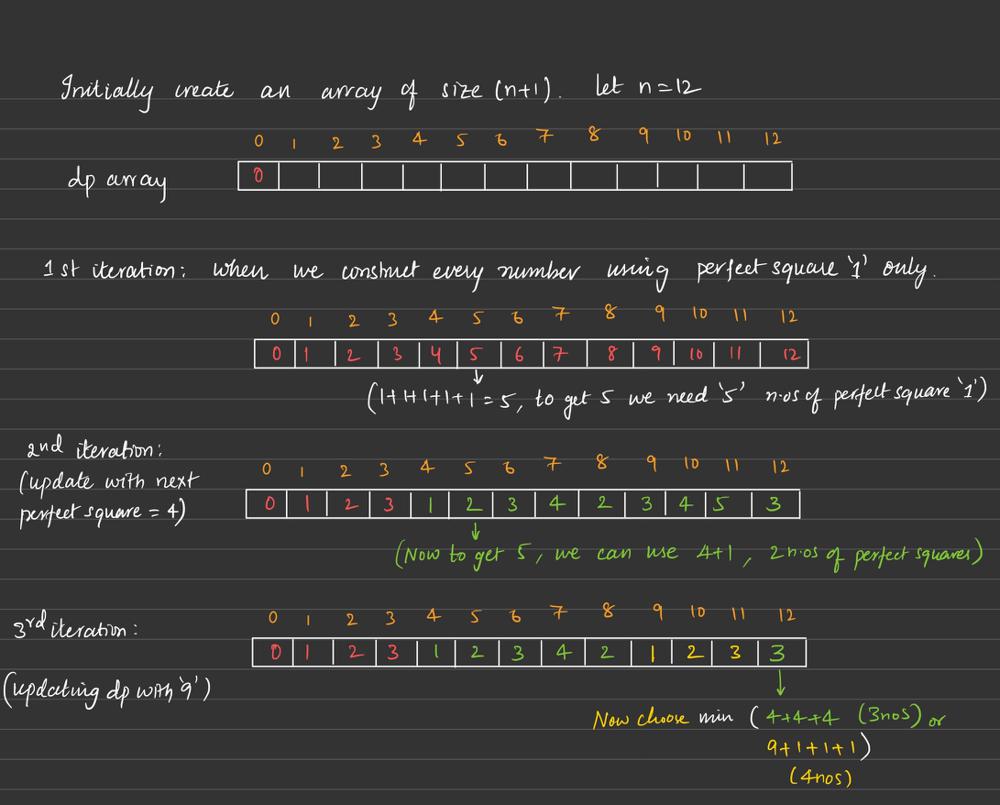 Initially create an array of size (n+1). let n=12
0 1 2 3 4 5 6 7 8 9 10 11 12
dp array 0
1st iteration: when we construct every number using perfect square '1' only.
0 1 2 3 4 5 6 7 8 9 10 11 12
0 1 2 3 4 5 6 7 8 9 10 11 12
(1+1+1+1+1=5, to get 5 we need '5' n.os of perfect square '1')
2nd iteration:
0 1 2 3 4 5 6 7 8 9 10 11 12
(update with next
perfect square = 4)
0 1 2 3 1 2 3 4 2 3 4 5 3
(Now to get 5, we can use 4+1, 2 n.os of perfect squares)
3rd iteration:
0 1 2 3 4 5 6 7 8 9 10 11 12
0 1 2 3 1 2 3 4 2 1 2 3 3
(updating dp with '9')
Now choose min (4+4+4 (3nos) or
9+1+1+1)
(4nos)